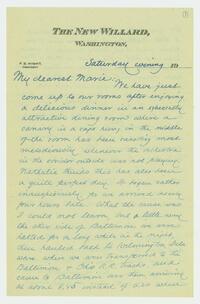 (1)
THE NEW WILLARD,
WASHINGTON,
Saturday evening 19
My dearest Marie:-
We have just
come up to our rooms after enjoying
a delicious dinner in an especially
attractive dining room where a
canary in a cage hung in the middle
of the room has been singing most
melodiously whenever the orchestra
in the corridor outside was not playing.
Nathalie thinks this has also been
a quite perfect day. It began rather
inauspiciously for we arrived many
four hours late. What the cause was
I could not learn but a little way
the other side of Baltimore we were
halted for a long while in the night
then hauled back to Wilmington Dela
ware where we were transferred to the
Baltimore & Ohio R.R. tracks and
came to Baltimore over them arriving
at about 8.45 instead of 2.50 when